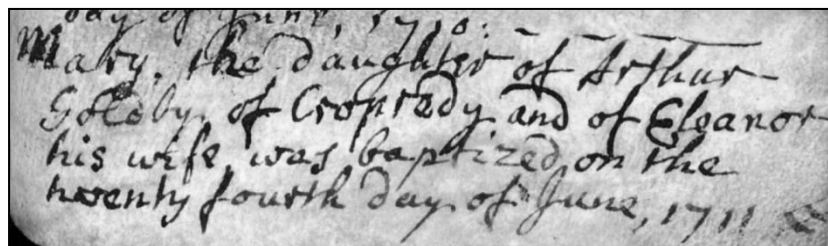 day of June, 1710:
Mary, the daughter of Arthur
Goldby, of Cropredy and of Eleanor
his wife, was baptized on the
twenty fourth day of June, 1711